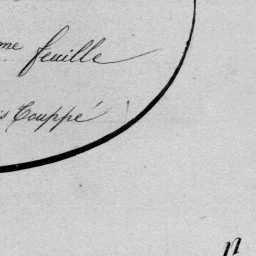 me feuille
is Couppé
n